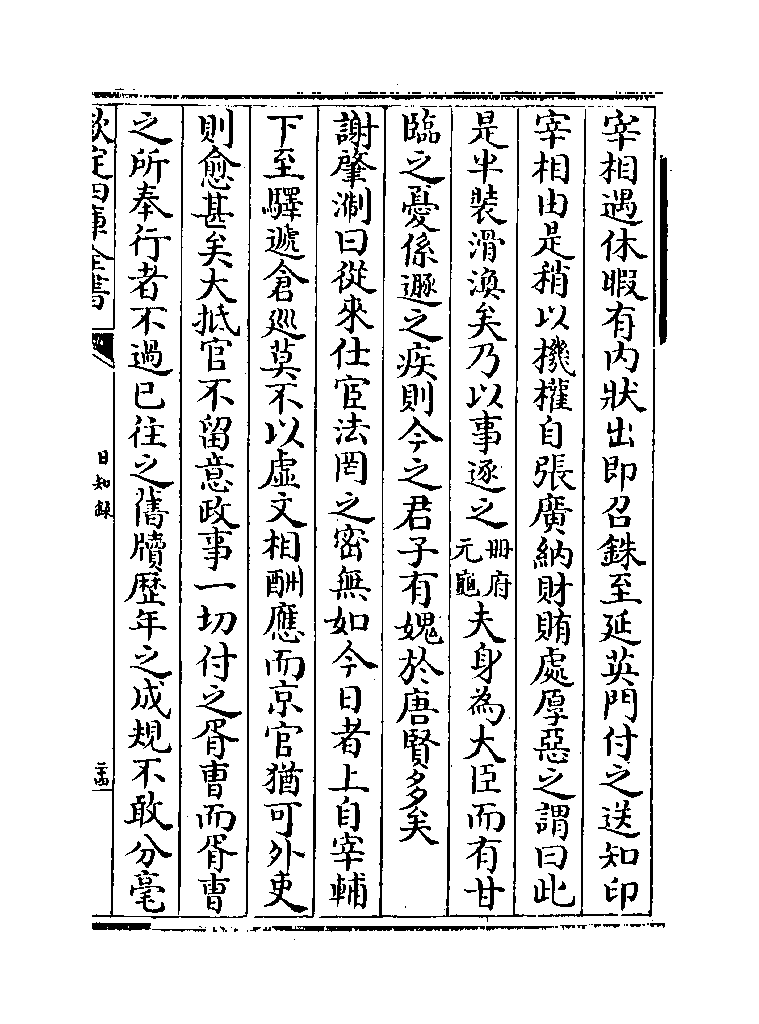 宰相遇休暇有内狀出即召銖至延英門付之送知印
宰相由是稍以機權自張廣納財賄處厚惡之謂曰此
是半裝滑渙矣乃以事逐之冊府元龜夫身為大臣而有甘
臨之憂係遯之疾則今之君子有媿於唐賢多矣
謝肇淛曰從來仕宦法罔之密無如今日者上自宰輔
下至驛遞倉廵莫不以虛文相酬應而京官猶可外吏
則愈甚矣大抵官不留意政事一切付之胥曹而胥曹
之所奉行者不過已往之舊牘歷年之成規不敢分毫
欽定四庫全書
日知錄
二十四